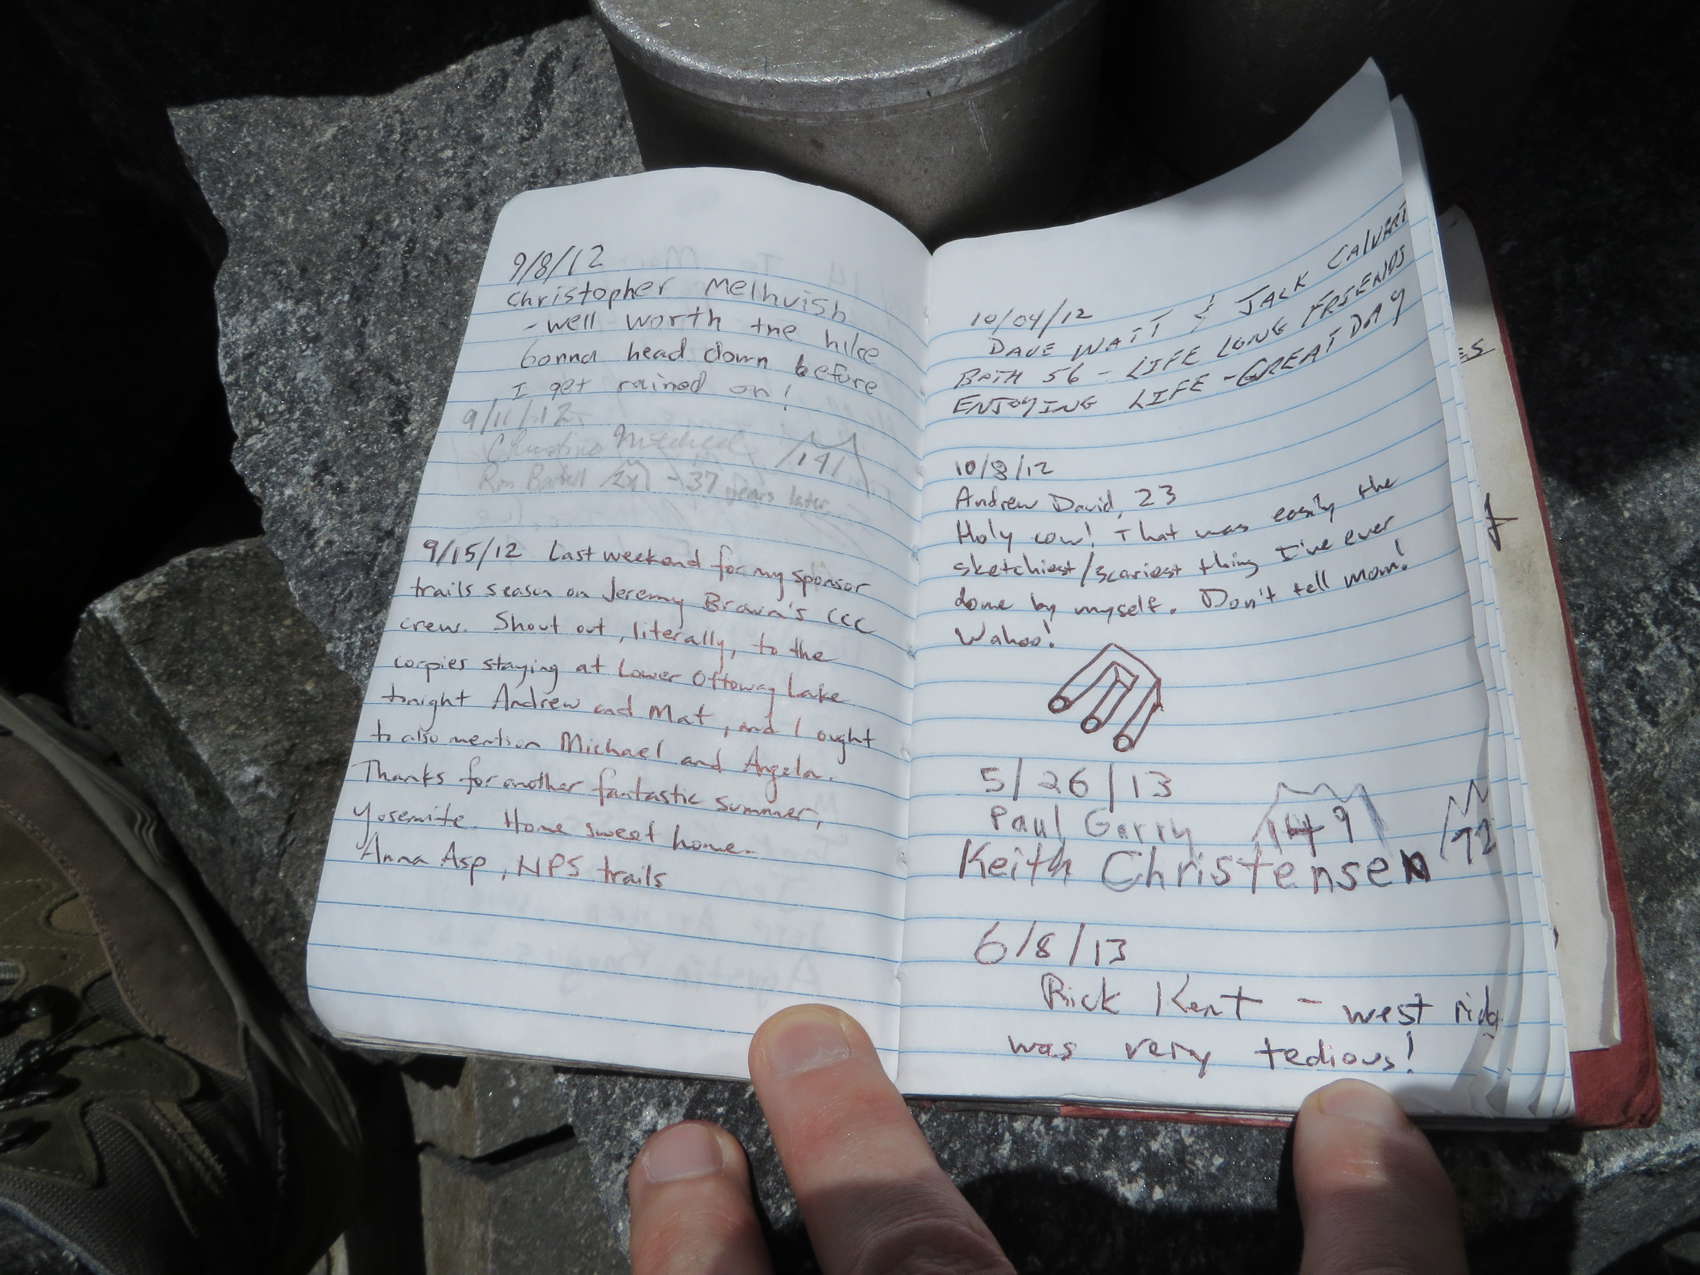 9/8/12
Christopher Melhuish
- well worth the hike
Gonna head down before
I get rained on!
9/11/12
Christina Mitchell 141
Ron 2x) - 37 years later
9/15/12 Last weekend for my sponsor
trails season on Jeremy Brown's CCC
crew. Shout out, literally, to the
corpies staying at Lower Ottoway Lake
tonight Andrew and Mat, and I ought
to also mention Michael and Angela.
Thanks for another fantastic summer,
Yosemite. Home sweet home.
Anna Asp, NPS trails
10/04/12
DAVE WATT & JACK CALVERT
BOTH 56 - LIFE LONG FRIENDS
ENJOYING LIFE - GREAT DAY
10/8/12
Andrew David, 23
Holy cow! That was easily the
sketchiest/scariest thing I've ever
done by myself. Don't tell mom!
Wahoo!
5/26/13
Paul Garry 149
Keith Christensen 72
6/8/13
Rick Kent - west ridg
was very tedious!